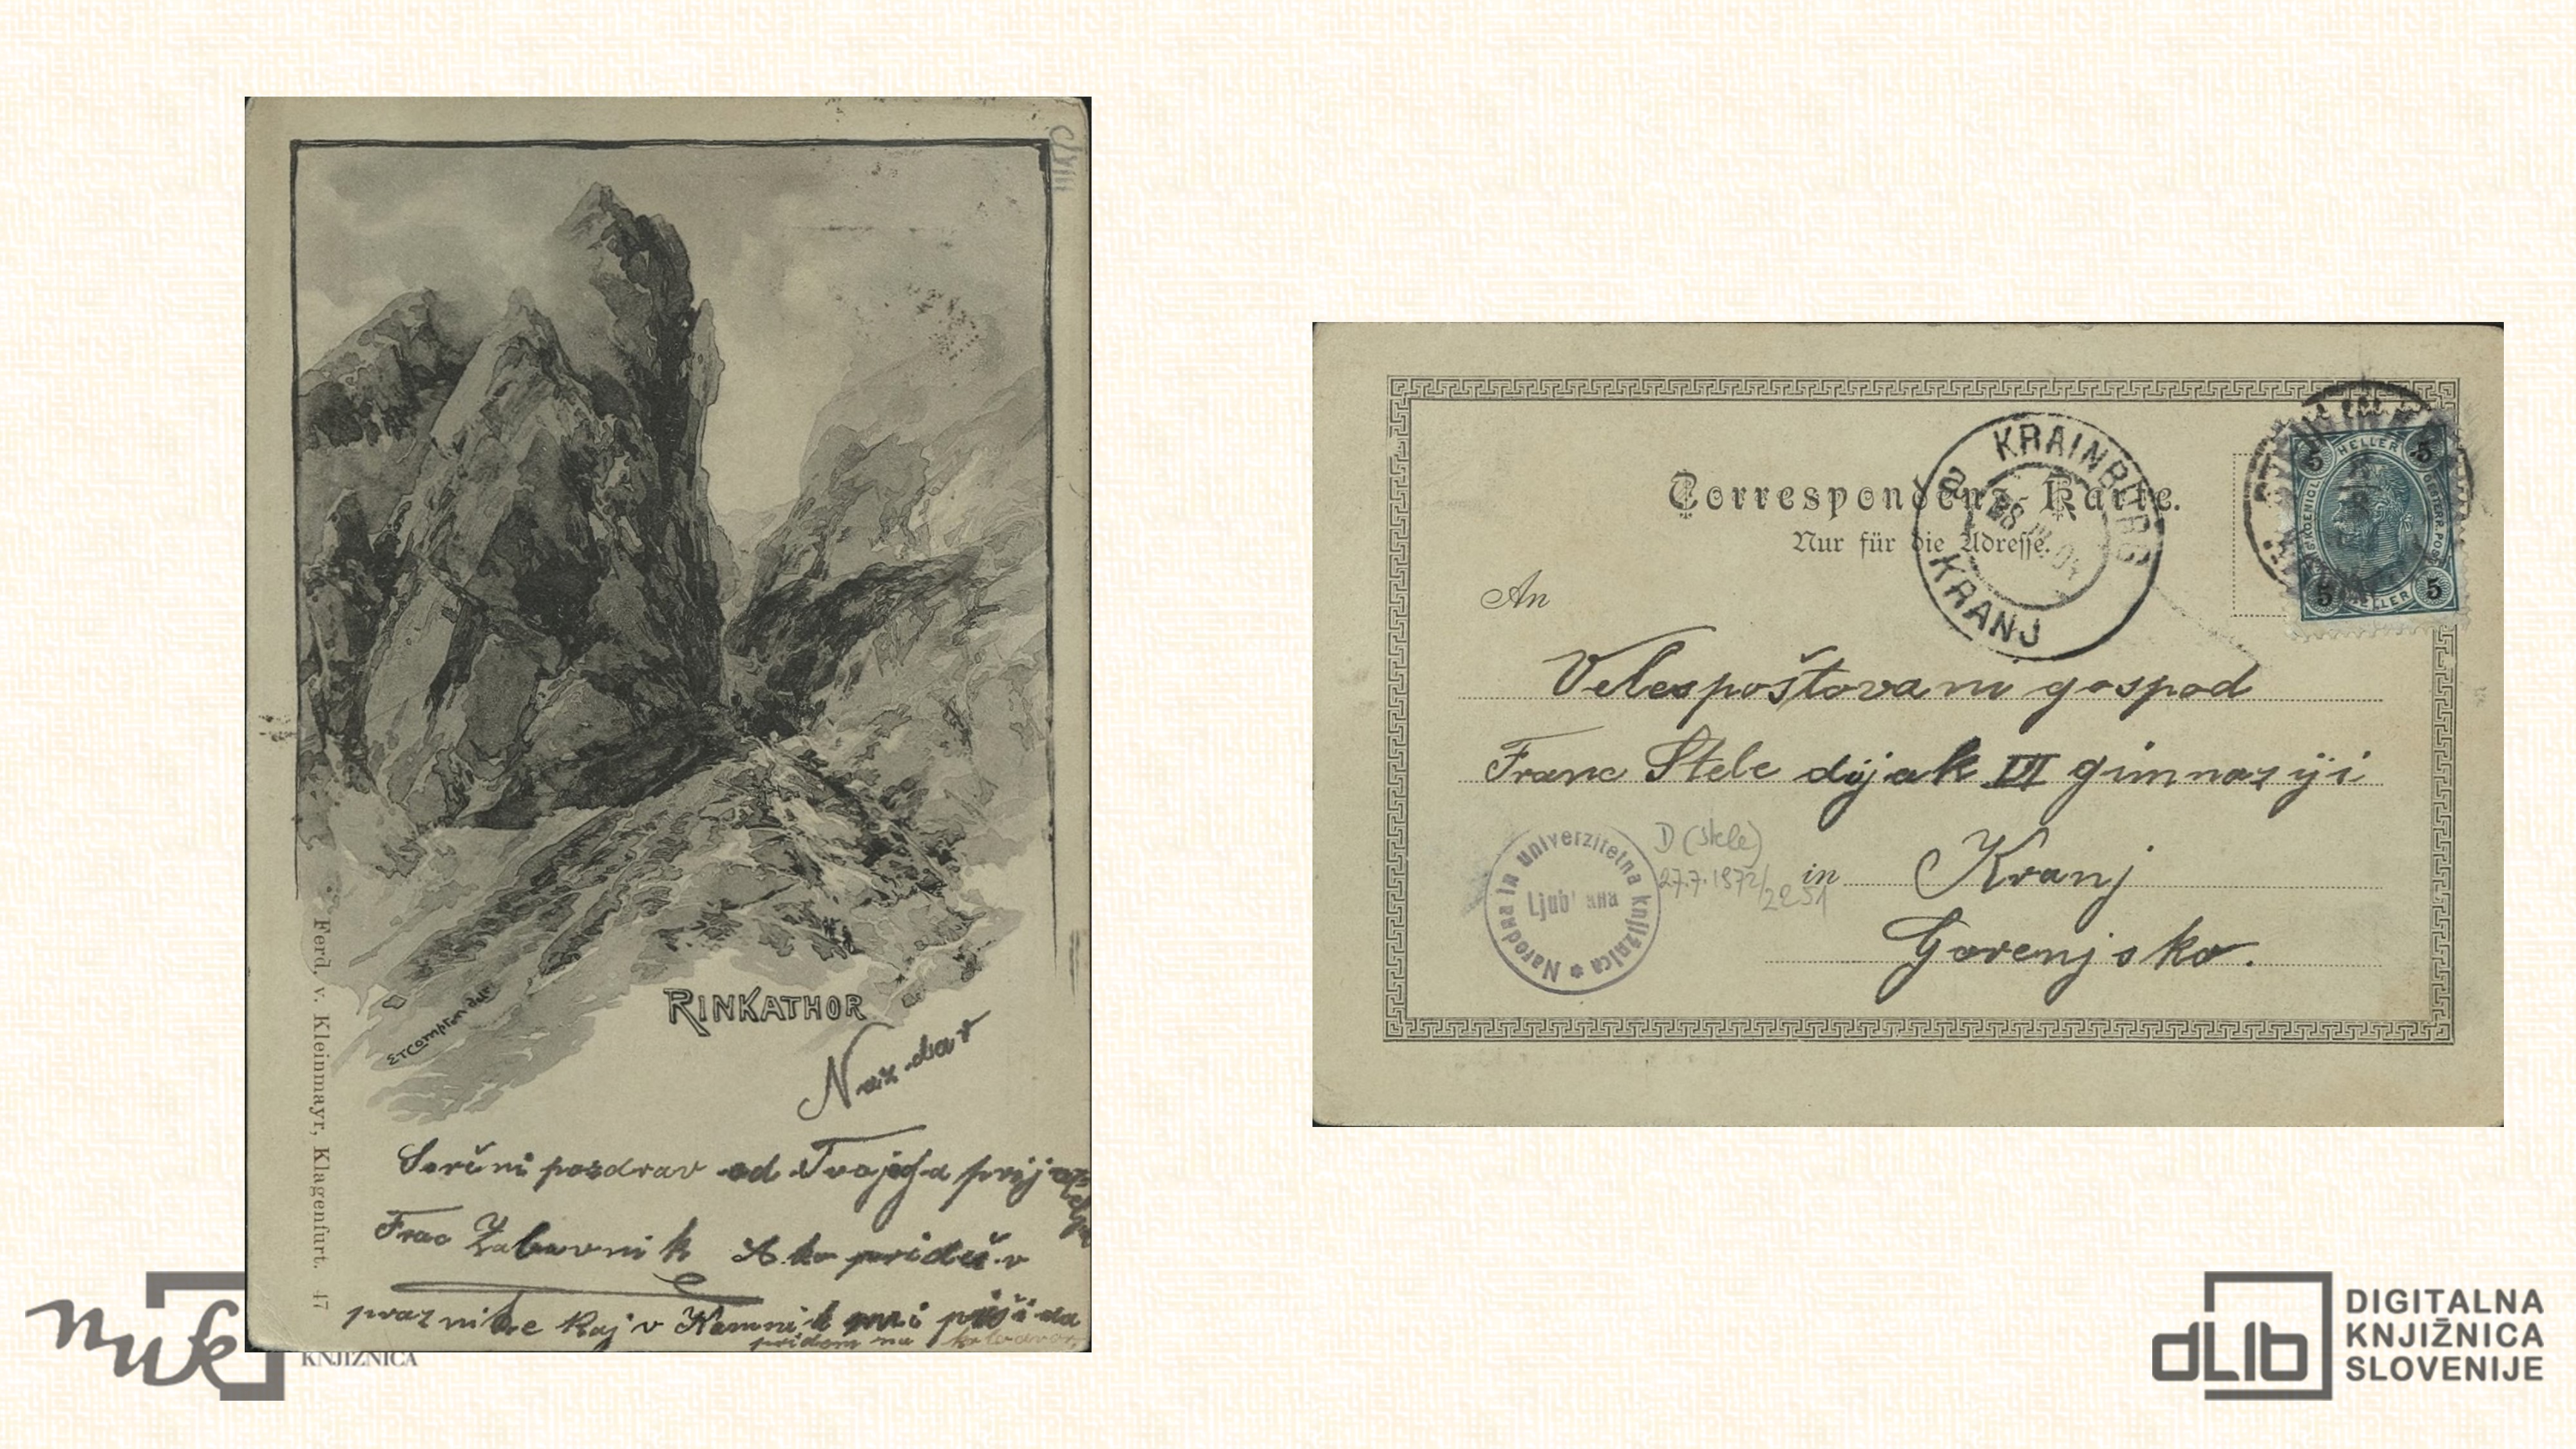 C/VIII
RINKATHOR
E.T. Compton
Ferd. v. Kleinmayr, Klagenfurt. 47
Nazdar
Serčni pozdrav od Tvojega prijatelja
Franc Zabavnik Ako prideš v
praznike kaj v Kamnik mi piši da
pridem na kolodvor
nuk
KNJIŽNICA
Correspondenz-Karte.
Nur für die Adresse.
KRAINBURG
KRANJ
a
HELLER
5 5
5 5
HELLER
An
Velespoštovani gospod
Franc Stele dijak VI gimnaziji
in Kranj
Gorenjsko.
Narodna in univerzitetna knjižnica
Ljubljana
D (Stele)
27.7.1972/2251
dLib
DIGITALNA
KNJIŽNICA
SLOVENIJE